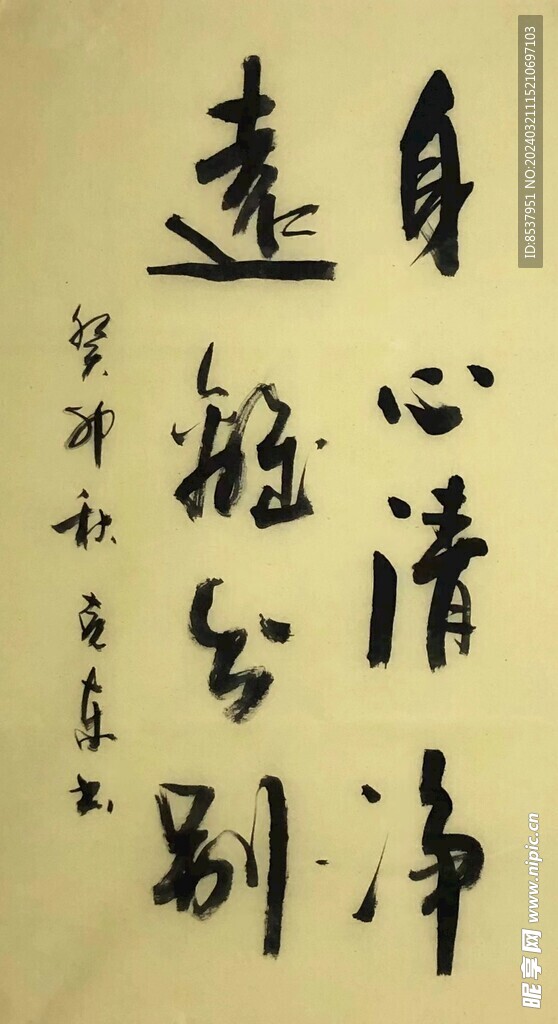 身心清净
遠離分别
癸卯秋 克東书
ID:8537951 NO:20240321115210697103
昵享网 www.nipic.cn